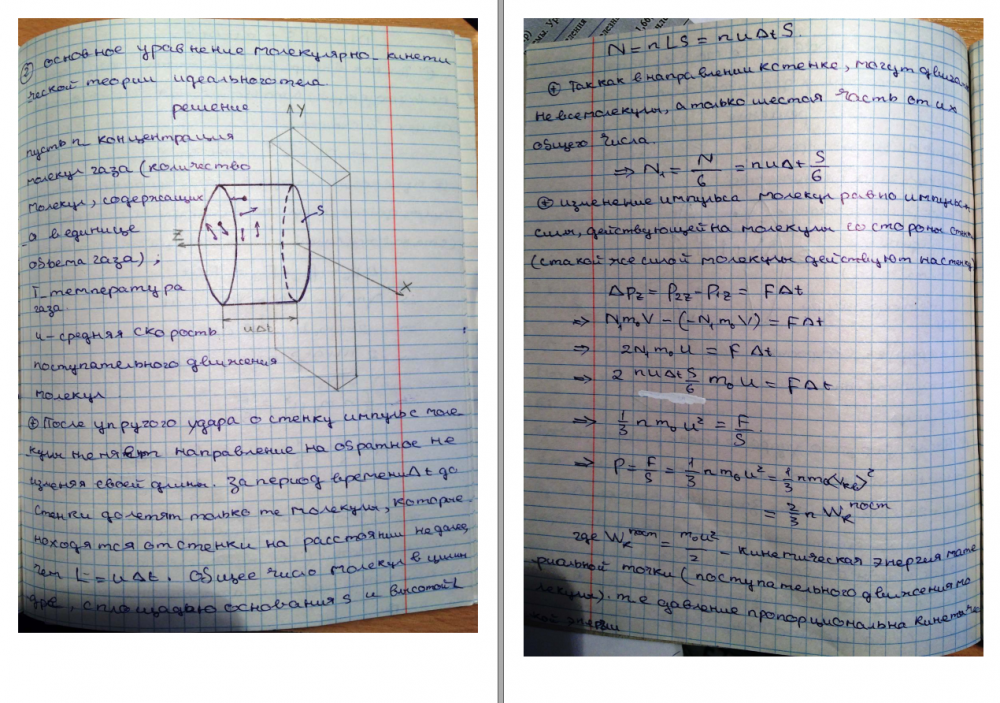 ② основное уравнение молекулярно-кинети
ческой теории идеального тела
решение
пусть n - концентрация
молекул газа (количество
молекул, содержащих
-а в единице
объема газа),
T - температура
газа
u - средняя скорость
поступательного движения
молекул
Y
S
Z
X
uΔt
⊕ После упругого удара о стенку импульс моле
кул меняет направление на обратное не
изменяя своей длины. За период времени Δt до
стенки долетят только те молекулы, которые
находятся от стенки на расстоянии не далее,
чем L = uΔt. Общее число молекул в цилин
дре, с площадью основания S и высотой L
N = nLS = nuΔtS.
⊕ Так как в направлении к стенке, могут двига
не все молекулы, а только шестая часть от их
общего числа.
⇒ N₁ = N/6 = nuΔt S/6
⊕ изменение импульса молекул равно импульсу
силы, действующей на молекулы со стороны стен
(с такой же силой молекулы действуют на стенку)
Δp_z = p_2z - p_1z = FΔt
⇒ N₁m₀V - (-N₁m₀V) = FΔt
⇒ 2N₁m₀u = FΔt
⇒ 2 nuΔt S/6 m₀u = FΔt
⇒ 1/3 n m₀u² = F/S
⇒ P = F/S = 1/3 n m₀u² = 1/3 nm₀<v_кв>²
= 2/3 n W_k^пост
где W_k^пост = m₀u²/2 - кинетическая энергия мате
риальной точки (поступательного движения мо
лекулы). т.е давление пропорциональна кинетичес
кой энергии